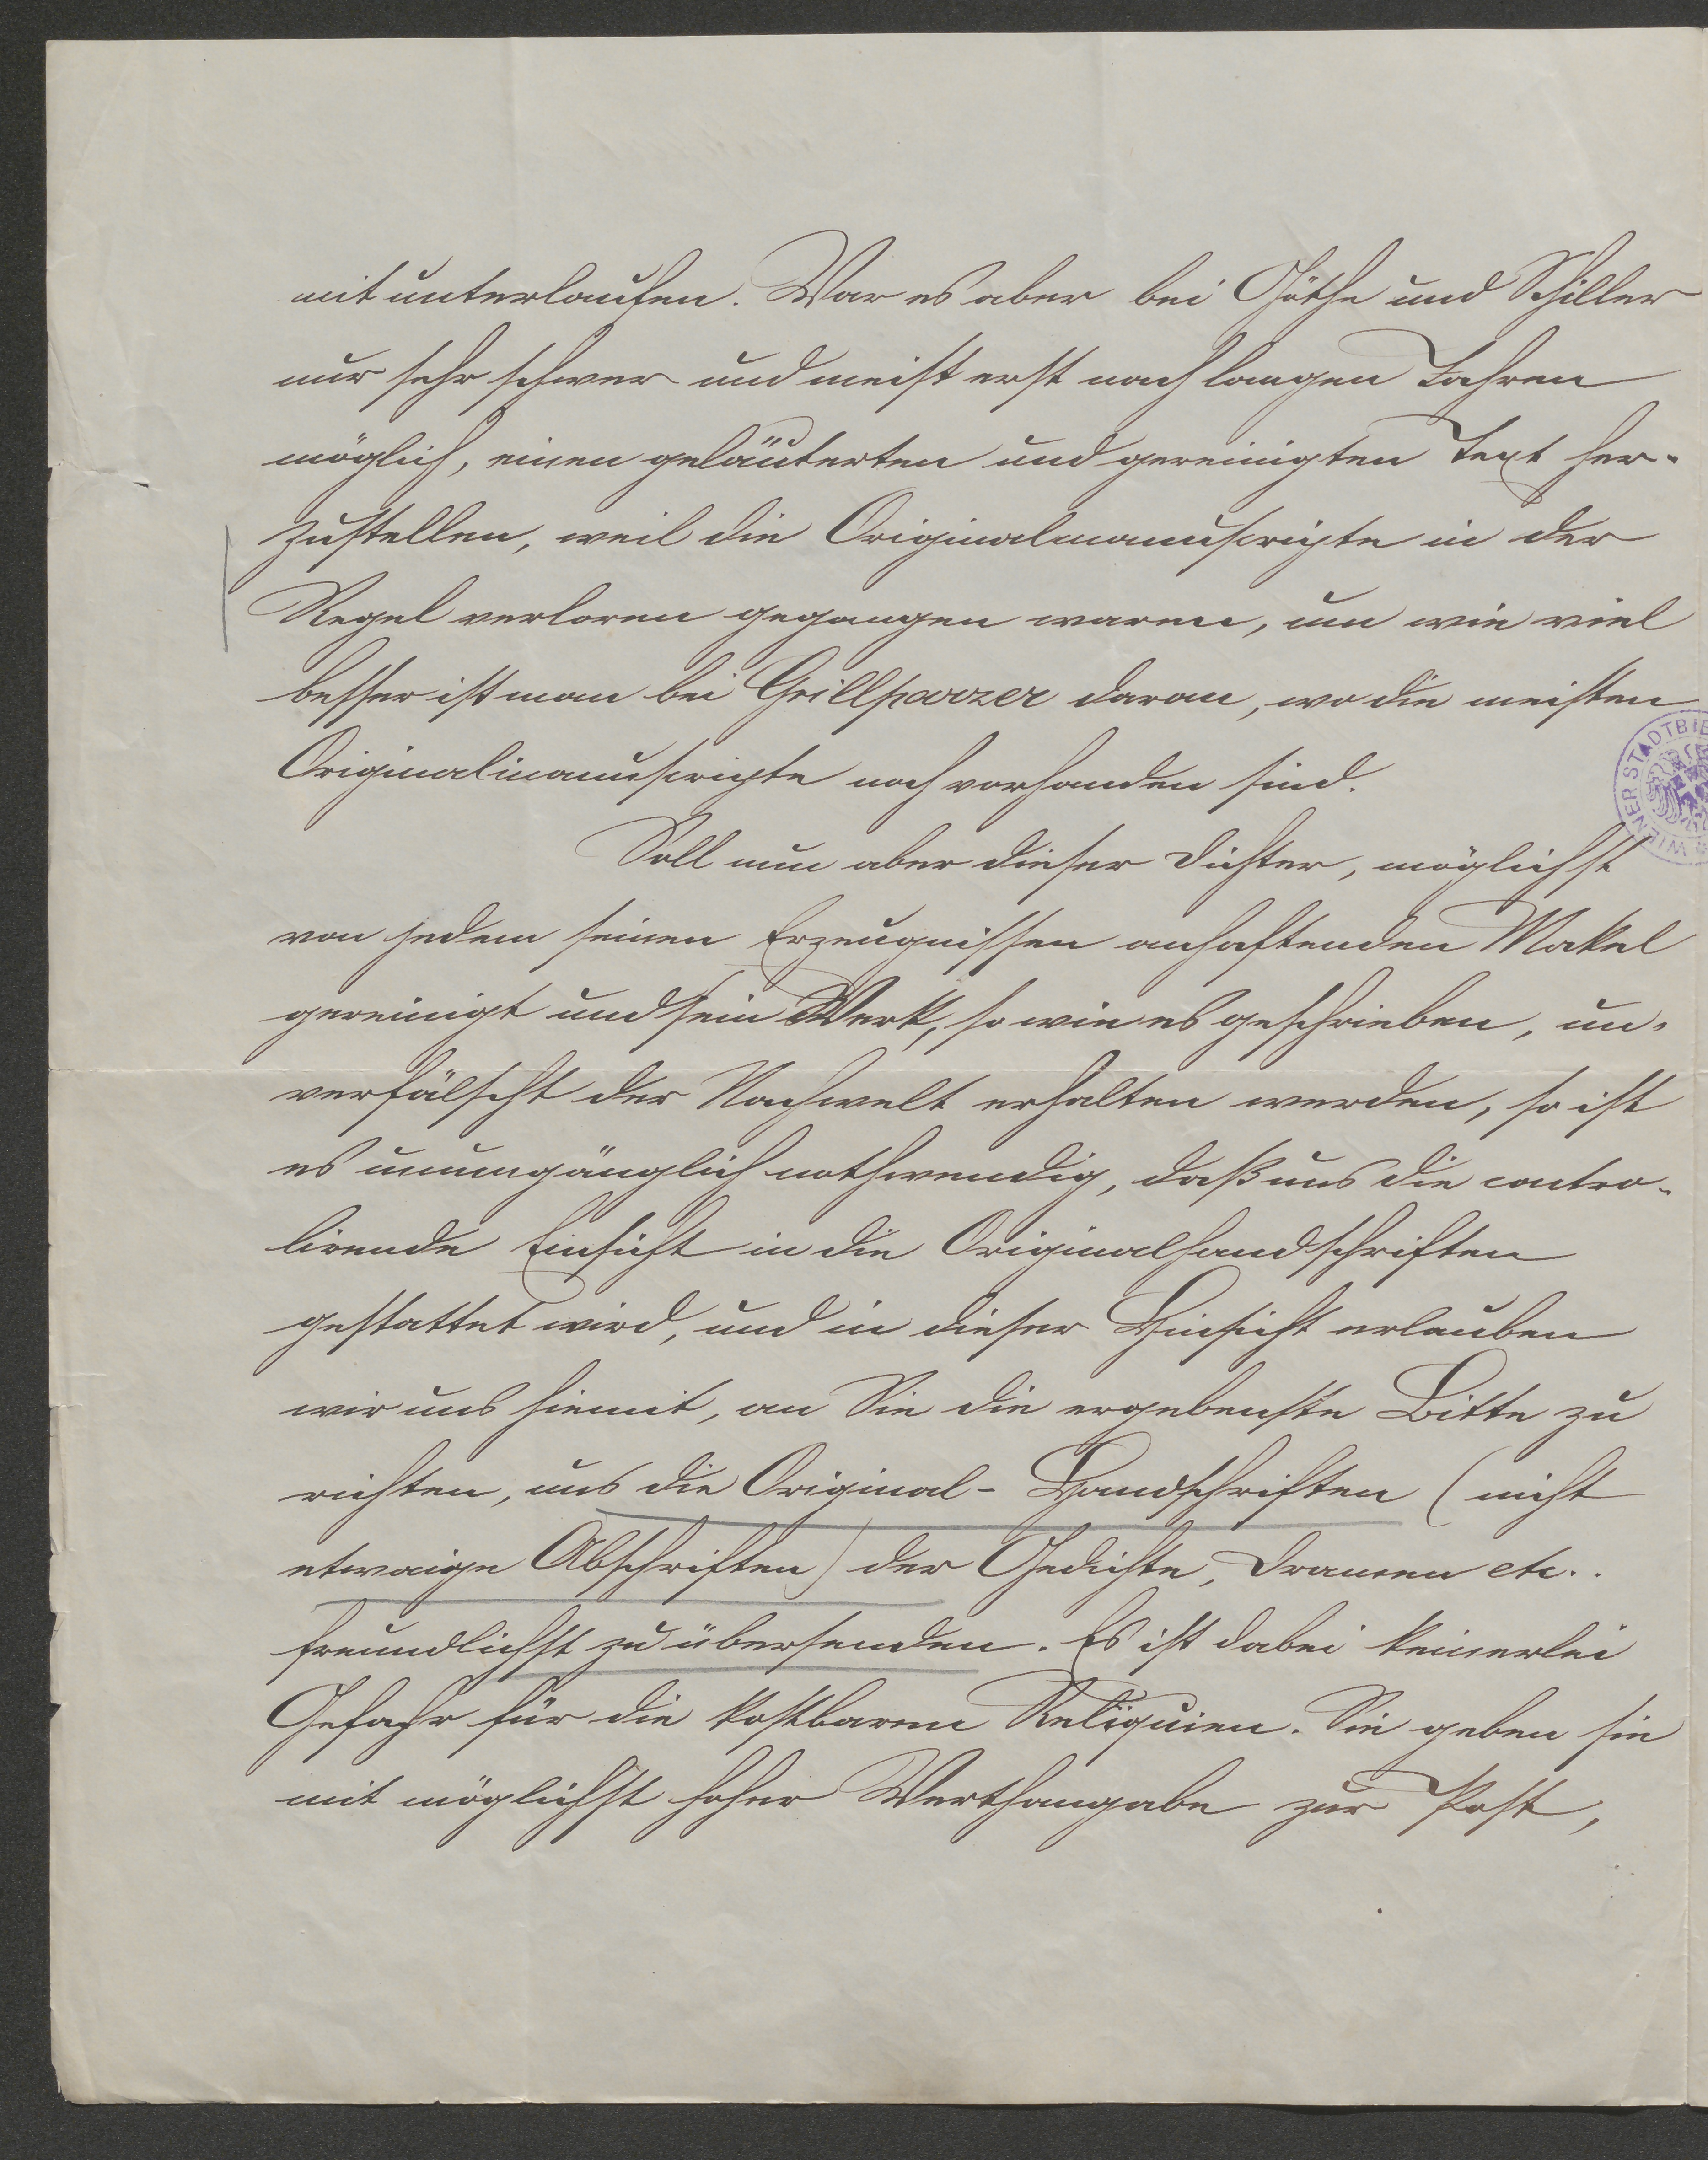 mit unterlaufen. War es aber bei Göthe und Schiller
nur sehr schwer und meist erst nach langen Jahren
möglich, einen geläuterten und gereinigten Text her-
zustellen, weil die Originalmanuscripte in der
Regel verloren gegangen waren, um wie viel
besser ist man bei Grillparzer daran, wo die meisten
Originalmanuscripte noch vorhanden sind.
WIENER STADTBIB
Soll nun aber dieser Dichter, möglichst
von jedem seinen Erzeugnissen anhaftenden Makel
gereinigt und sein Werk, so wie es geschrieben, un-
verfälscht der Nachwelt erhalten werden, so ist
es unumgänglich nothwendig, daß uns die contro-
lirende Einsicht in die Originalhandschriften
gestattet wird, und in dieser Hinsicht erlauben
wir uns hiemit, an Sie die ergebenste Bitte zu
richten, uns die Original-Handschriften (nicht
etwaige Abschriften) der Gedichte, Dramen etc..
freundlichst zu übersenden. Es ist dabei keinerlei
Gefahr für die kostbaren Reliquien. Sie geben sie
mit möglichst hoher Werthangabe zur Post,